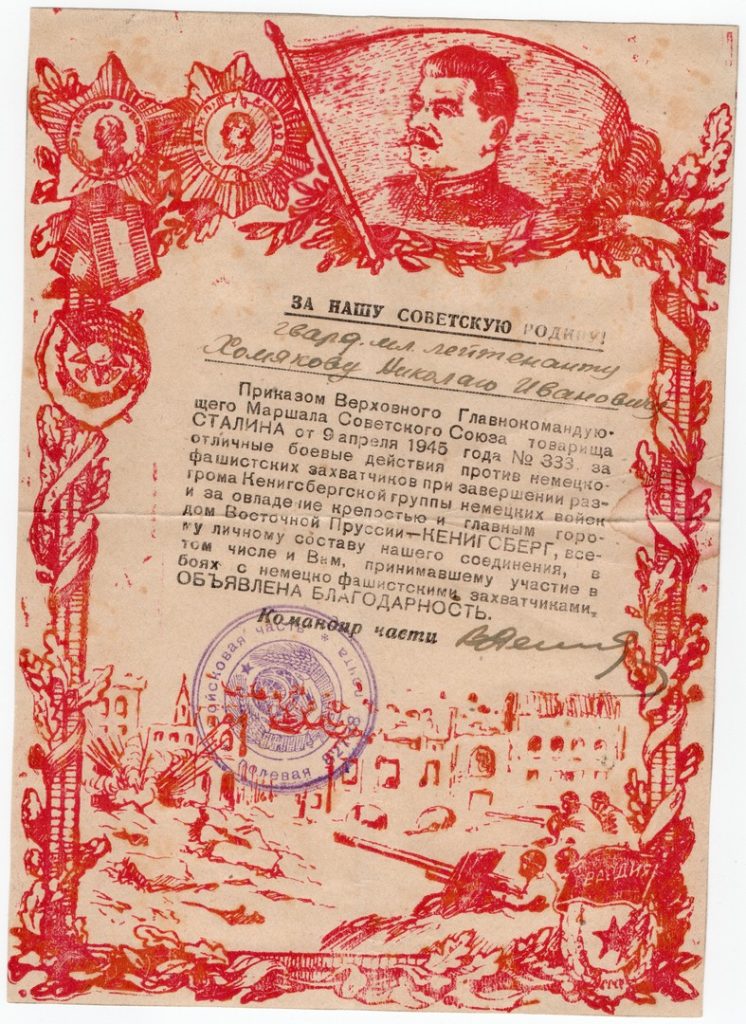 ЗА НАШУ СОВЕТСКУЮ РОДИНУ!
гвард. мл. лейтенанту
Хомякову Николаю Ивановичу
Приказом Верховного Главнокомандую-
щего Маршала Советского Союза товарища
СТАЛИНА от 9 апреля 1945 года № 333 за
отличные боевые действия против немецко-
фашистских захватчиков при завершении раз-
грома Кенигсбергской группы немецких войск
и за овладение крепостью и главным горо-
дом Восточной Пруссии—КЕНИГСБЕРГ, все-
му личному составу нашего соединения, в
том числе и Вам, принимавшему участие в
боях с немецко фашистскими захватчиками,
ОБЪЯВЛЕНА БЛАГОДАРНОСТЬ.
Командир части
войсковая часть * полевая почта
ГВАРДИЯ
СССР